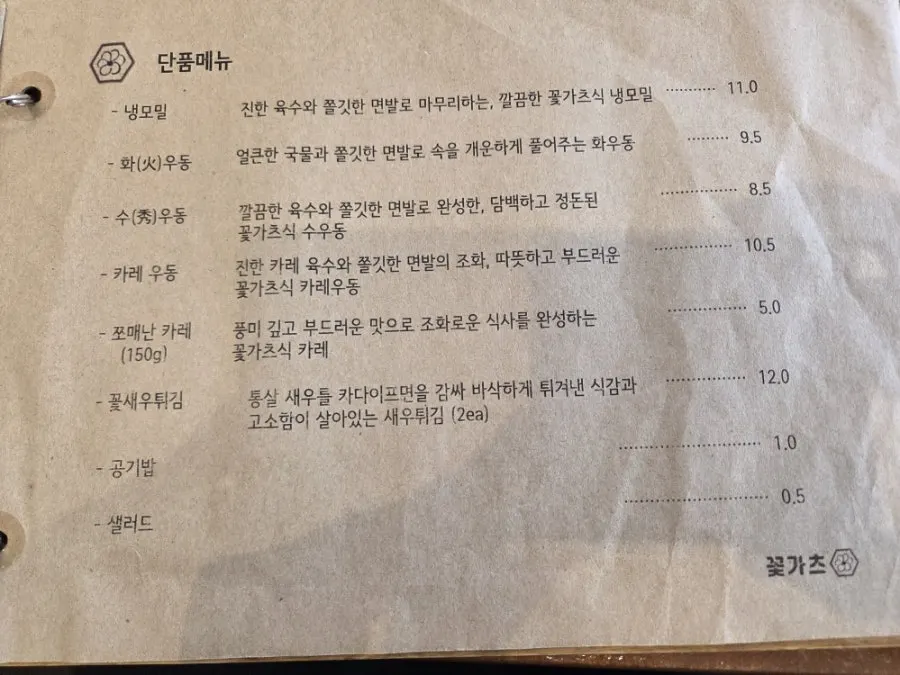 단품메뉴
- 냉모밀 진한 육수와 쫄깃한 면발로 마무리하는, 깔끔한 꽃가츠식 냉모밀 ·········· 11.0
- 화(火)우동 얼큰한 국물과 쫄깃한 면발로 속을 개운하게 풀어주는 화우동 ········ 9.5
- 수(秀)우동 깔끔한 육수와 쫄깃한 면발로 완성한, 담백하고 정돈된 ··············· 8.5
꽃가츠식 수우동
- 카레 우동 진한 카레 육수와 쫄깃한 면발의 조화, 따뜻하고 부드러운 ··············· 10.5
꽃가츠식 카레우동
- 쪼매난 카레 풍미 깊고 부드러운 맛으로 조화로운 식사를 완성하는 ··············· 5.0
(150g) 꽃가츠식 카레
- 꽃새우튀김 통살 새우틀 카다이프면을 감싸 바삭하게 튀겨낸 식감과 ··············· 12.0
고소함이 살아있는 새우튀김 (2ea)
- 공기밥 ··························· 1.0
- 샐러드 ··························· 0.5
꽃가츠